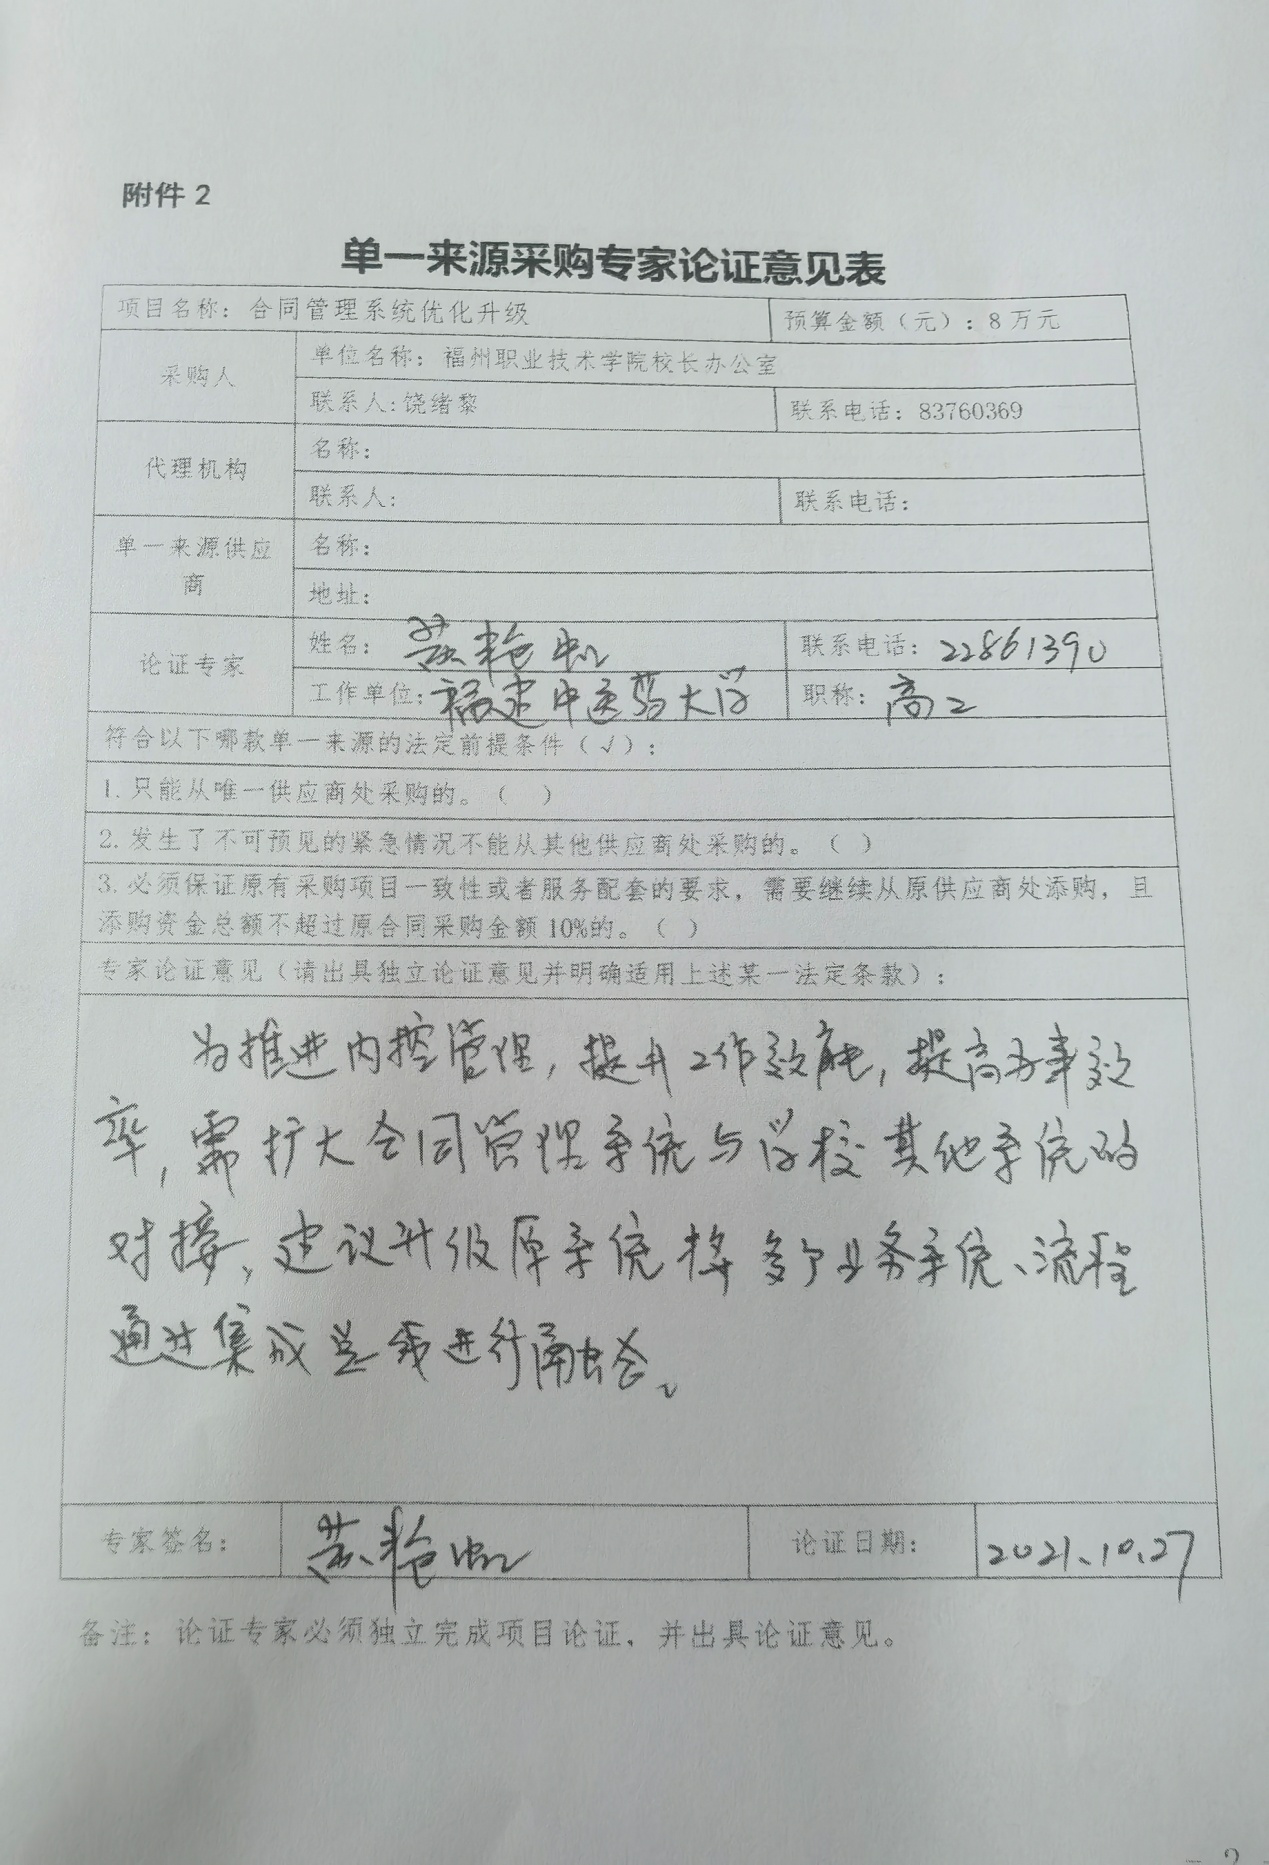 附件 2
单一来源采购专家论证意见表
项目名称：合同管理系统优化升级
预算金额（元）：8 万元
采购人
单位名称：福州职业技术学院校长办公室
联系人:饶绪黎
联系电话：83760369
代理机构
名称：
联系人:
联系电话：
单一来源供应
商
名称：
地址：
论证专家
姓名：苏艳虹
联系电话：22861390
工作单位:福建中医药大学
职称：高工
符合以下哪款单一来源的法定前提条件（√）：
1. 只能从唯一供应商处采购的。（ ）
2. 发生了不可预见的紧急情况不能从其他供应商处采购的。（ ）
3. 必须保证原有采购项目一致性或者服务配套的要求，需要继续从原供应商处添购，且
添购资金总额不超过原合同采购金额 10%的。（ ）
专家论证意见（请出具独立论证意见并明确适用上述某一法定条款）：
为推进内控管理，提升工作效能，提高办事效
率，需扩大合同管理系统与学校其他系统的
对接，建议升级原系统将多个业务系统、流程
通过集成总线进行融合。
专家签名：
苏艳虹
论证日期：
2021.10.27
备注：论证专家必须独立完成项目论证，并出具论证意见。